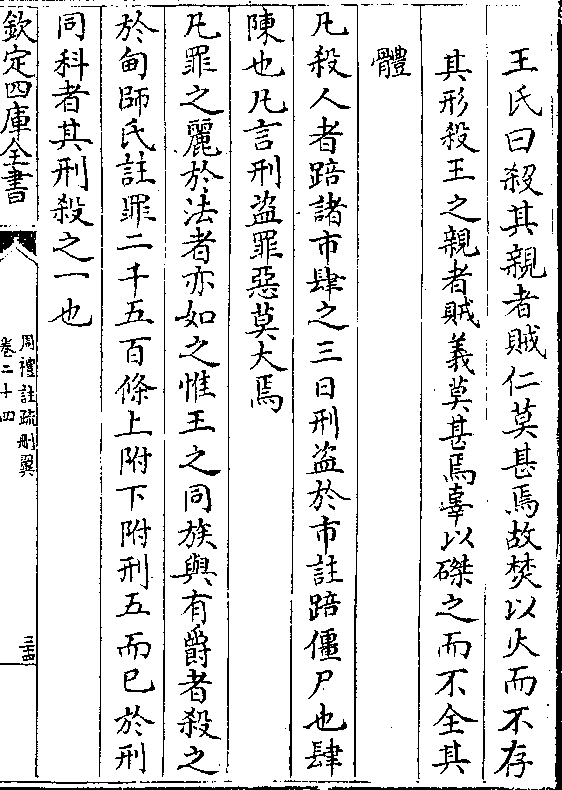 王氏曰殺其親者賊仁莫甚焉故焚以火而不存
其形殺王之親者賊義莫甚焉辜以磔之而不全其
體
凡殺人者踣諸市肆之三日刑盜於市註踣僵尸也肆
陳也凡言刑盜罪惡莫大焉
凡罪之麗於法者亦如之惟王之同族與有爵者殺之
於甸師氏註罪二千五百條上附下附刑五而已於刑
同科者其刑殺之一也
欽定四庫全書
周禮註疏刪翼
卷二十四
三十四